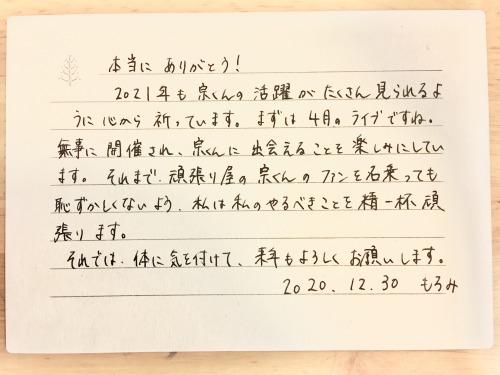 本当に ありがとう！
2021年も 宗くんの 活躍が たくさん 見られるよ
うに 心から 祈っています。 まずは 4月の ライブですね。
無事に 開催され、宗くんに 出会えることを 楽しみにしてい
ます。 それまで、頑張り屋の 宗くんの ファンを 名乗っても
恥ずかしくないよう、私は 私の やるべきことを 精一杯 頑
張ります。
それでは、体に 気を付けて、来年も よろしく お願いします。
2020.12.30 もろみ